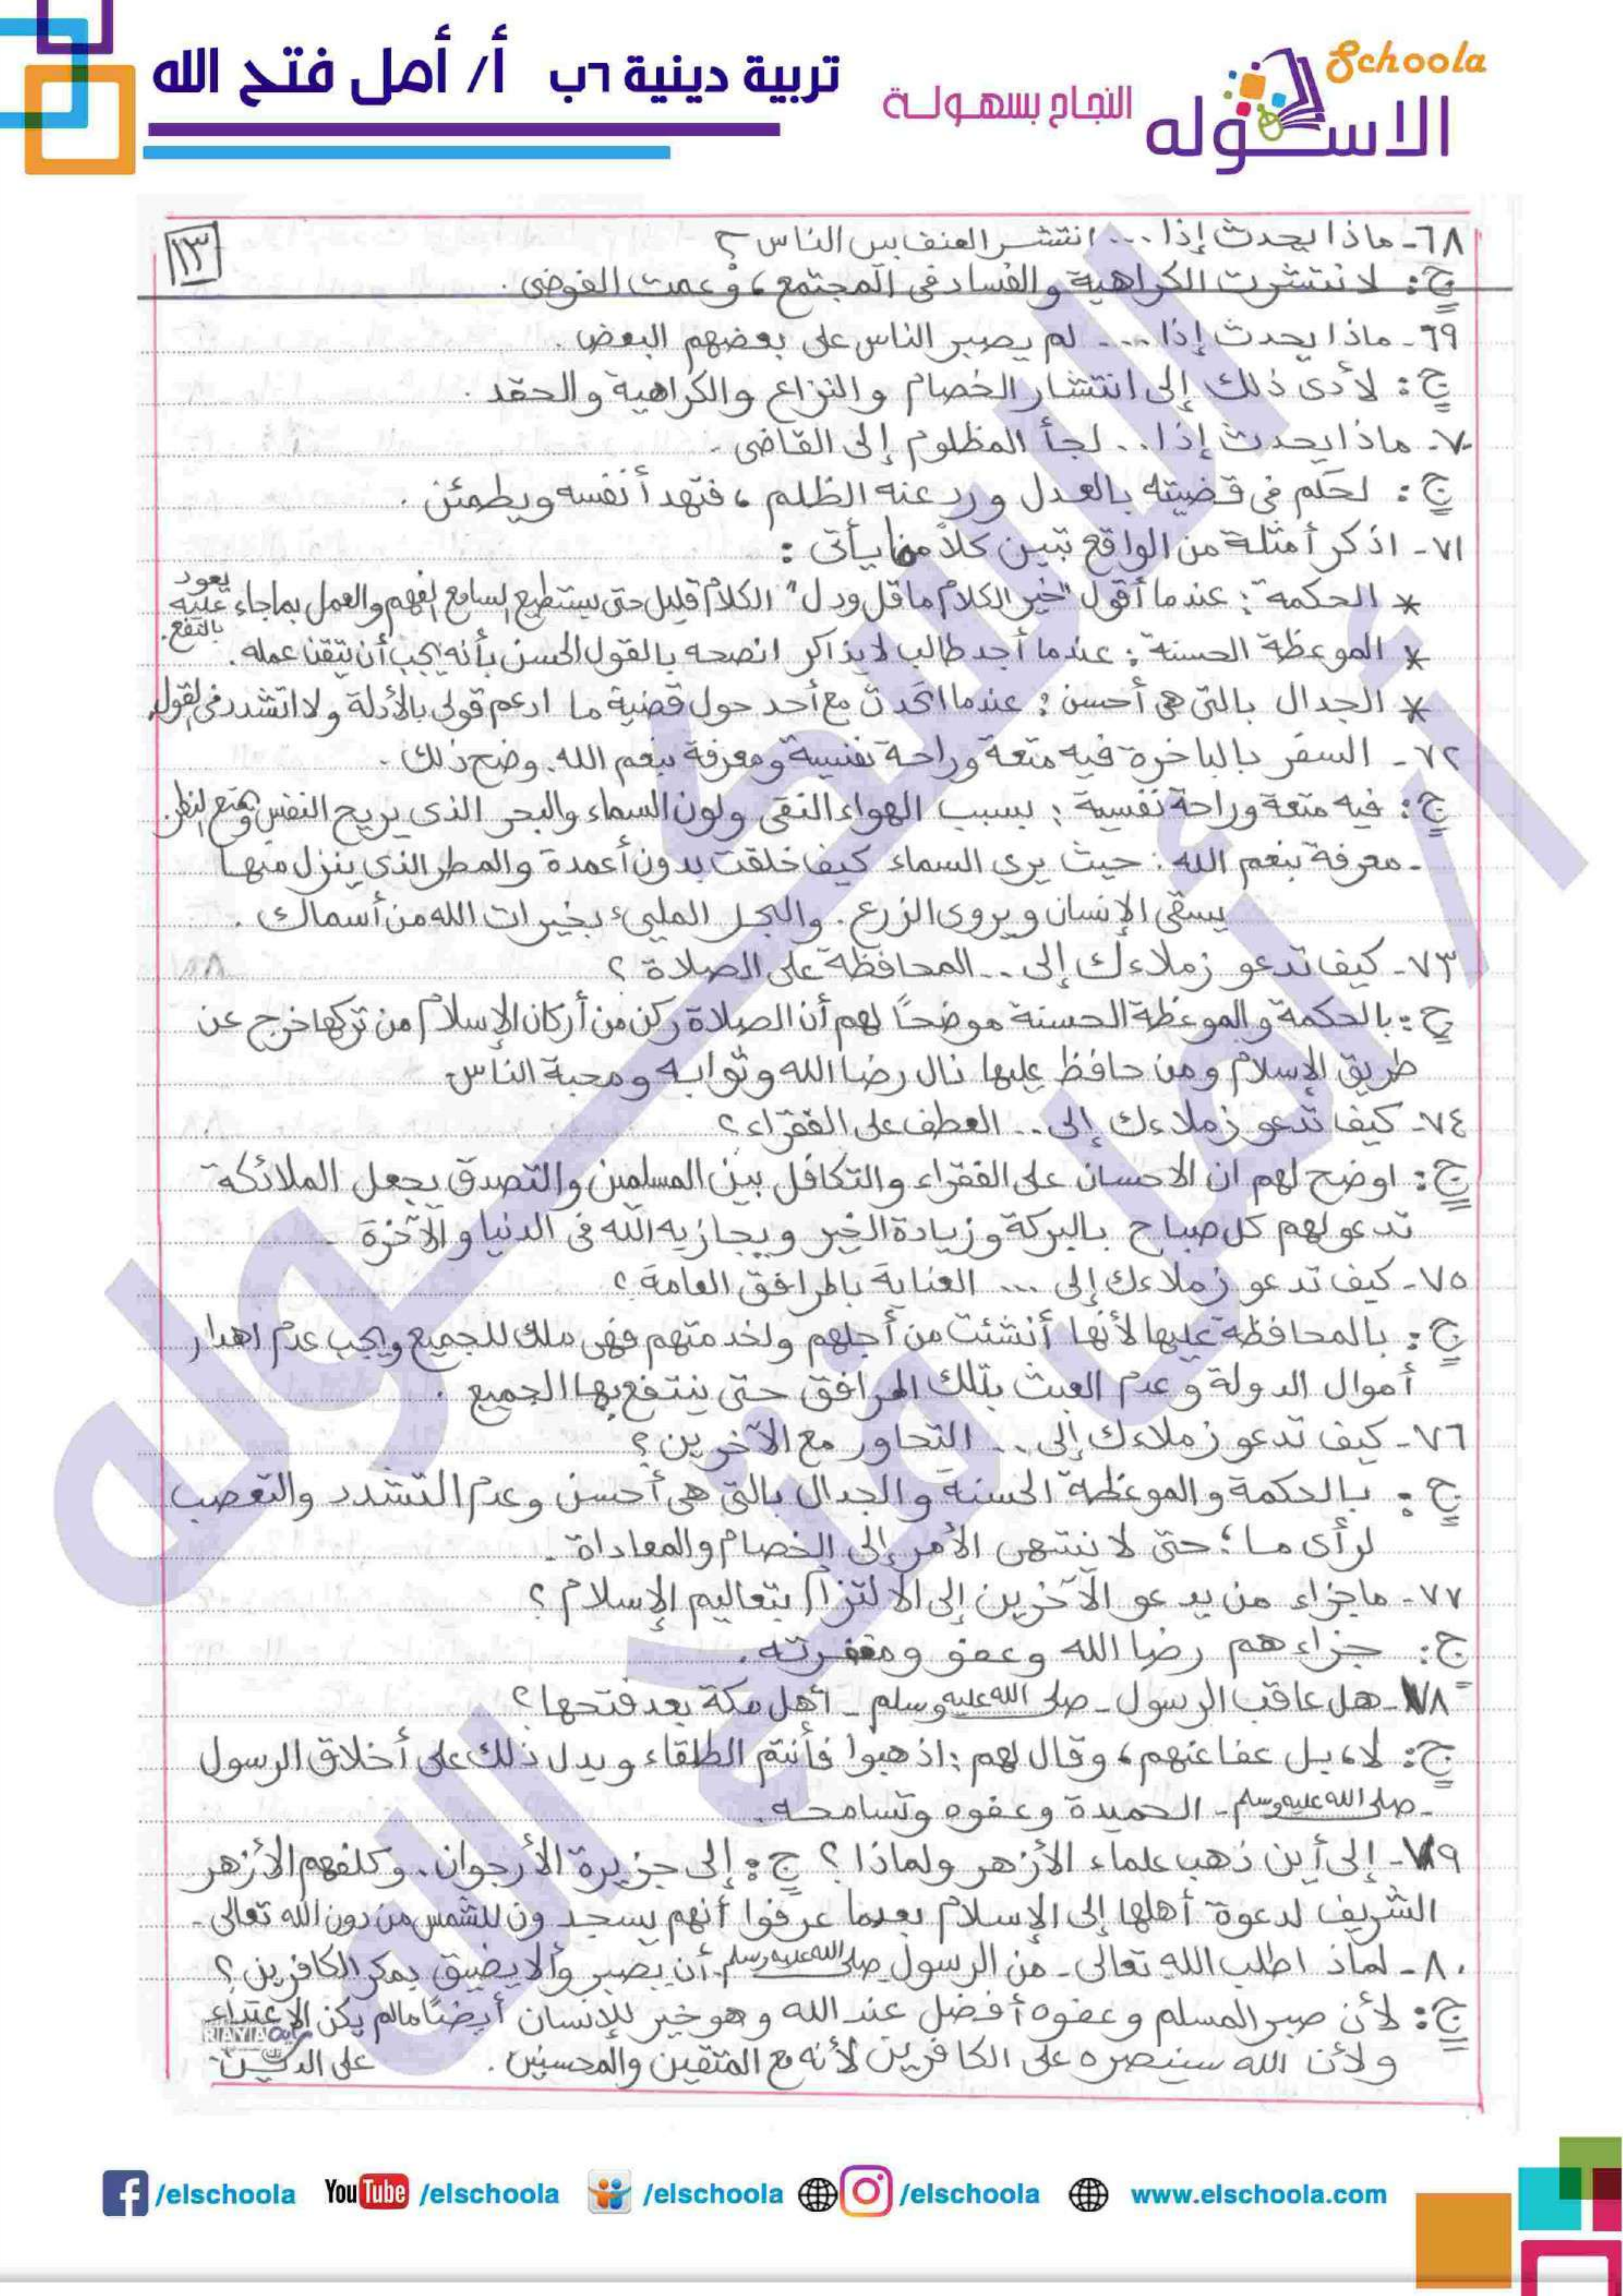 Schoola
الاسكوله
النجاح بسهولة
تربية دينية ٦ب أ/ أمل فتح الله
١٣
٦٨- ماذا يحدث إذا ... انتشر العنف بين الناس ؟
ج : لانتشرت الكراهية والفساد فى المجتمع ، وعمت الفوضى .
٦٩- ماذا يحدث إذا ... لم يصبر الناس على بعضهم البعض .
ج : لأدى ذلك إلى انتشار الخصام والنزاع والكراهية والحقد .
٧٠- ماذا يحدث إذا .. لجأ المظلوم إلى القاضى .
ج : لحكم فى قضيته بالعدل ورد عنه الظلم ، فتهدأ نفسه ويطمئن .
٧١- اذكر أمثلة من الواقع تبين كلاً مما يأتى :
* الحكمة : عندما أقول "خير الكلام ما قل ودل" الكلام قليل حتى يستطيع السامع الفهم والعمل بما جاء يعود عليه بالنفع .
* الموعظة الحسنة : عندما أجد طالب لا يذاكر انصحه بالقول الحسن بأنه يجب أن يتقن عمله .
* الجدال بالتى هى أحسن : عندما اتحدث مع أحد حول قضية ما ادعم قولى بالأدلة ولا اتشدد فى القول.
٧٢- السفر بالباخرة فيه متعة وراحة نفسية ومعرفة بنعم الله . وضح ذلك .
ج : فيه متعة وراحة نفسية : بسبب الهواء النقى ولون السماء والبحر الذى يريح النفس ويمتع النظر.
- معرفة بنعم الله : حيث يرى السماء كيف خلقت بدون أعمدة والمطر الذى ينزل منها
يسقى الإنسان ويروى الزرع . والبحر الملىء بخيرات الله من أسماك .
٧٣- كيف تدعو زملاءك إلى .. المحافظة على الصلاة ؟
ج : بالحكمة والموعظة الحسنة موضحاً لهم أن الصلاة ركن من أركان الإسلام من تركها خرج عن
طريق الإسلام ومن حافظ عليها نال رضا الله وثوابه ومحبة الناس
٧٤- كيف تدعو زملاءك إلى .. العطف على الفقراء ؟
ج : اوضح لهم ان الاحسان على الفقراء والتكافل بين المسلمين والتصدق يجعل الملائكة
تدعو لهم كل صباح بالبركة وزيادة الخير ويجازيه الله فى الدنيا والآخرة .
٧٥- كيف تدعو زملاءك إلى ... العناية بالمرافق العامة ؟
ج : بالمحافظة عليها لأنها أنشئت من أجلهم ولخدمتهم فهى ملك للجميع ويجب عدم اهدار
أموال الدولة وعدم العبث بتلك المرافق حتى ينتفع بها الجميع .
٧٦- كيف تدعو زملاءك إلى .. التحاور مع الآخرين ؟
ج : بالحكمة والموعظة الحسنة والجدال بالتى هى أحسن وعدم التشدد والتعصب
لرأى ما ؛ حتى لا ننتهى الأمر إلى الخصام والمعاداة .
٧٧- ماجزاء من يدعو الآخرين إلى الالتزام بتعاليم الإسلام ؟
ج : جزاءهم رضا الله وعفو ومغفرته .
٧٨- هل عاقب الرسول - صلى الله عليه وسلم - أهل مكة بعد فتحها ؟
ج : لا ، بل عفا عنهم ، وقال لهم : اذهبوا فأنتم الطلقاء ويدل ذلك على أخلاق الرسول
- صلى الله عليه وسلم - الحميدة وعفوه وتسامحه .
٧٩- إلى أين ذهب علماء الأزهر ولماذا ؟ ج : إلى جزيرة الأرجوان . وكلفهم الأزهر
الشريف لدعوة أهلها إلى الإسلام بعدما عرفوا أنهم يسجدون للشمس من دون الله تعالى .
٨٠- لماذ اطلب الله تعالى - من الرسول صلى الله عليه وسلم أن يصبر وألا يضيق بمكر الكافرين ؟
ج : لأن صبر المسلم وعفوه أفضل عند الله وهو خير للإنسان أيضاً مالم يكن الاعتداء
ولأن الله سينصره على الكافرين لأنه مع المتقين والمحسنين . على الدين
RAYA
الاسكوله
أ/ أمل فتح الله
/elschoola YouTube /elschoola /elschoola /elschoola www.elschoola.com